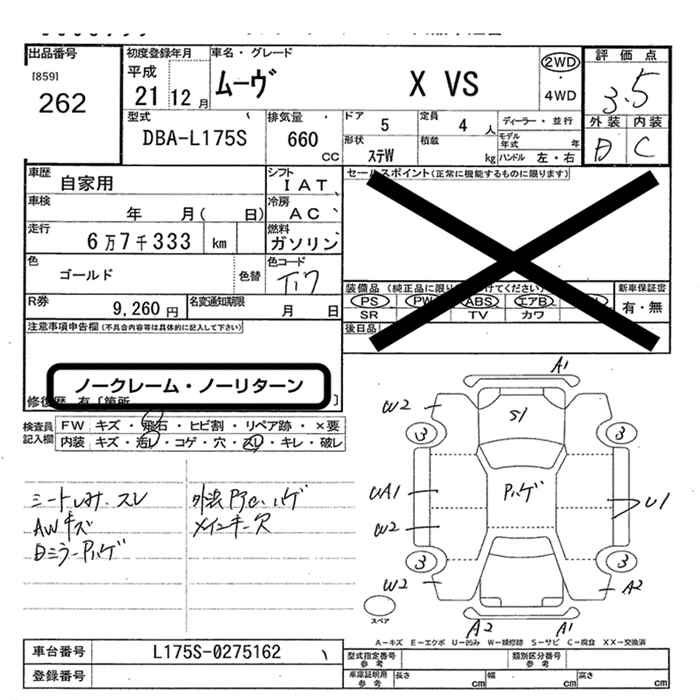 出品番号
[859]
262
初度登録年月
平成
21 12月
車名・グレード
ムーヴ X VS
2WD
・
4WD
評価点
3.5
外装 内装
B C
型式
DBA-L175S
排気量
660
cc
ドア 5
形状 ステW
定員 4 人
積載 kg
ディーラー・並行
モデル年式 年
ハンドル 左・右
車歴
自家用
シフト
IAT
車検
年 月( 日)
冷房
AC
走行
6万7千333 km
燃料
ガソリン
色
ゴールド
色替
色コード
T17
R券
9,260円
名変通知期限
月 日
セールスポイント(正常に機能するものに限ります)
装備品(純正品に限り けてください)
PS PW ABS エアB
SR TV カワ
新車保証書
有・無
後日品
注意事項申告欄(不具合内容等は具体的に記入して下さい)
ノークレーム・ノーリターン
修復歴 有〔箇所 〕
検査員記入欄
FW キズ・飛石・ヒビ割・リペア跡・×要
内装 キズ・汚レ・コゲ・穴・スレ・キレ・破レ
シートしみ、スレ
AWキズ
Bミラー Pハゲ
メインキー欠
A1
W2 S1
3 3
UA1 Pハゲ U1
W2
3 3
W2 A2
A2 A1
スペア
A-キズ E-エクボ U-凹み W-補修跡 S-サビ C-腐食 XX-交換済
車台番号 L175S-0275162
登録番号
型式指定番号 参考
類別区分番号 参考
車庫証明用 参考 長さ cm 幅 cm 高さ cm